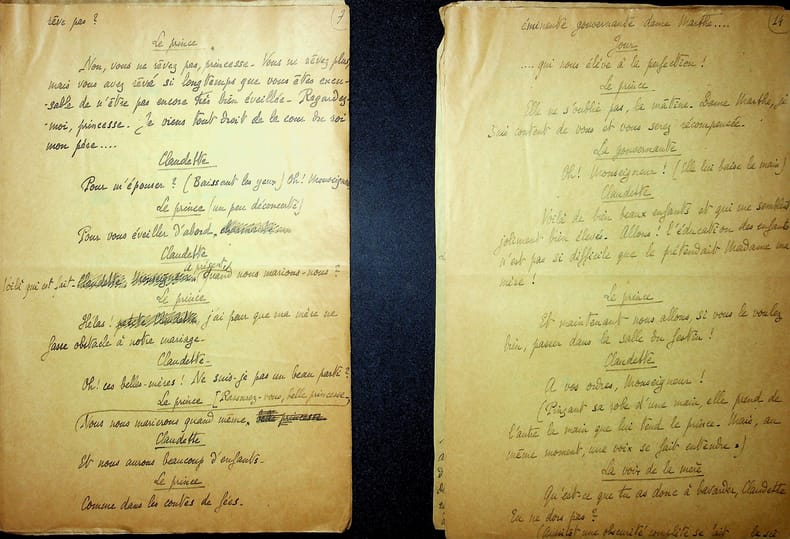 7
rêve pas ?
Le prince
Non, vous ne rêvez pas, princesse. Vous ne rêvez plus
mais vous avez rêvé si longtemps que vous êtes excu-
-sable de n'être pas encore très bien éveillée. Regardez-
-moi, princesse. Je viens tout droit de la cour du roi
mon père....
Claudette
Pour m'épouser ? (Baissant les yeux) Oh! Monseigneur
Le prince (un peu décontenté)
Pour vous éveiller d'abord,
Claudette
Voilà qui est fait. Claudette, Monseigneur, à présent, quand nous marions-nous ?
Le prince
Hélas ! j'ai peur que ma mère ne
fasse obstacle à notre mariage.
Claudette.
Oh! ces belles-mères ! Ne suis-je pas un beau parti ?
Le prince (Rassurez-vous, belle princesse,
Nous nous marierons quand même, belle princesse
Claudette
Et nous aurons beaucoup d'enfants.
Le prince
Comme dans les contes de fées.
14
éminente gouvernante dame Marthe....
Jour
....qui nous élève à la perfection !
Le prince
Elle ne s'oublie pas, la mâtine. Dame Marthe, je
suis content de vous et vous serez récompensée.
La gouvernante
Oh! Monseigneur ! (Elle lui baise la main)
Claudette
Voilà de bien beaux enfants et qui me semblent
joliment bien élevés. Allons ! L'éducation des enfants
n'est pas si difficile que le prétendait Madame ma
mère !
Le prince
Et maintenant nous allons, si vous le voulez
bien, passer dans la salle du festin !
Claudette
A vos ordres, Monseigneur !
(Pinçant sa robe d'une main, elle prend de
l'autre la main que lui tend le prince. Mais, au
même moment, une voix se fait entendre.)
La voix de la mère
Qu'est-ce que tu as donc à bavarder, Claudette
Tu ne dors pas ?
(Aussitôt une obscurité complète se fait